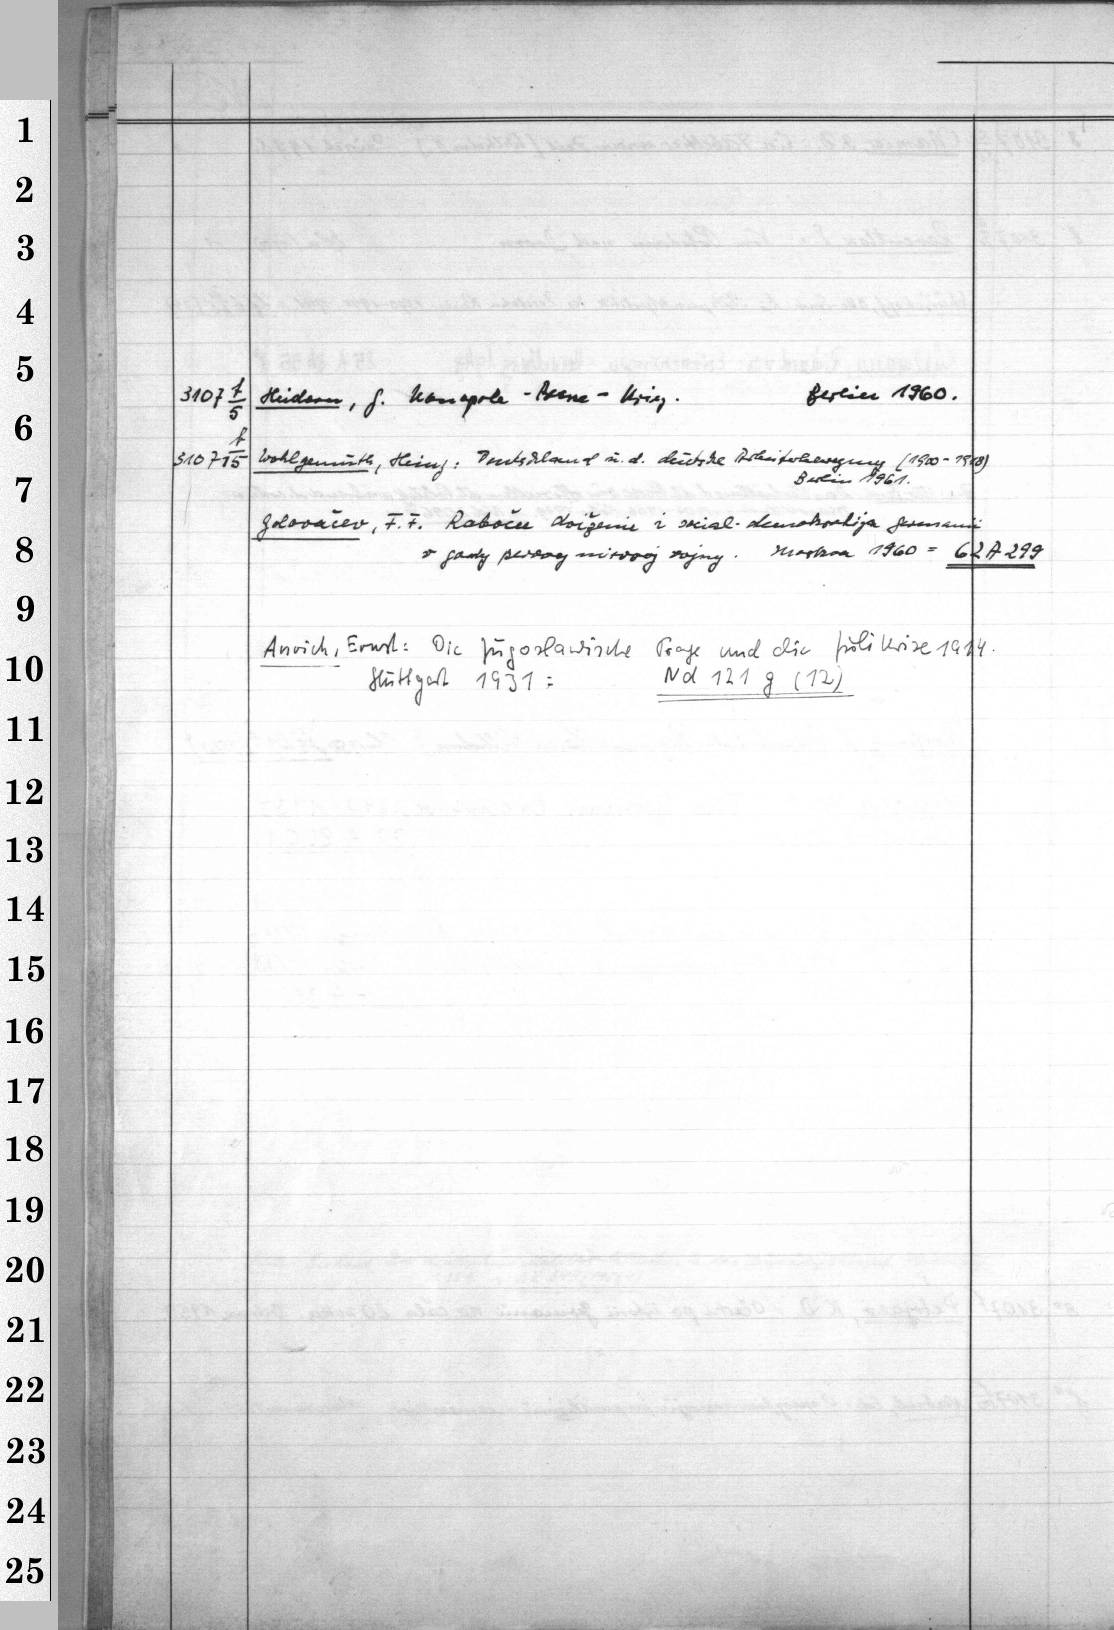 1
2
3
4
5
3107 f/5 Heidorn, G. Monopole - Presse - Krieg. Berlin 1960.
6
3107 f/15 Wohlgemuth, Heinz: Deutschland u. d. deutsche Arbeiterbewegung (1900-1918)
7
Berlin 1961.
Golovačev, F.F. Rabočee dviženie i social-demokratija Germanii
8
v gody pervoj mirovoj vojny. Moskva 1960 = 62 A 299
9
Anrich, Ernst: Die jugoslawische Frage und die Julikrise 1914.
10
Stuttgart 1931 = Nd 121 g (12)
11
12
13
14
15
16
17
18
19
20
21
22
23
24
25